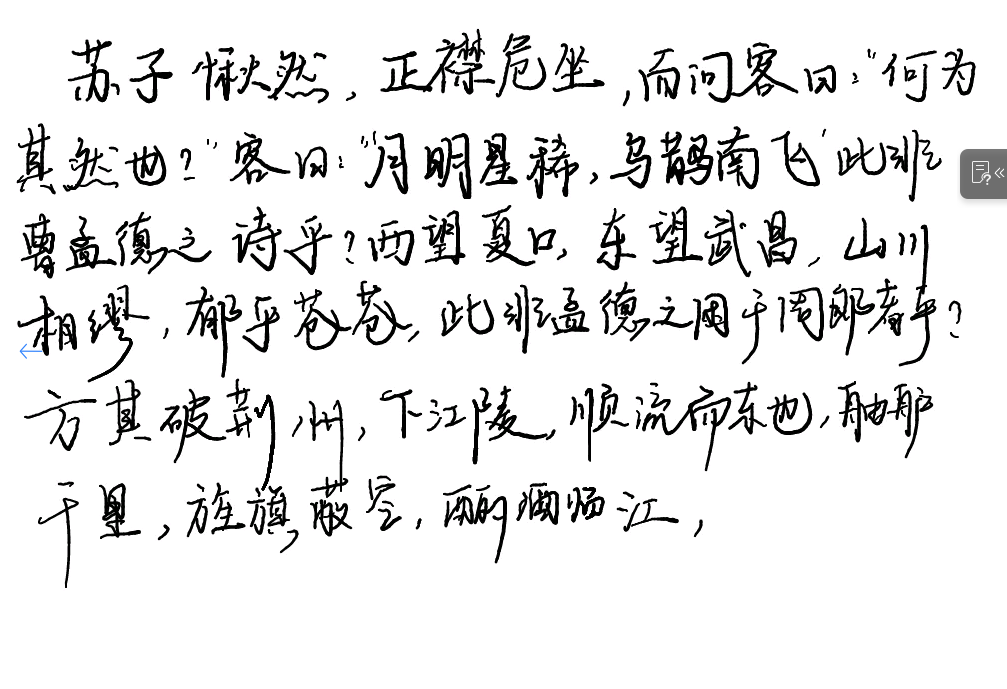 苏子愀然，正襟危坐，而问客曰："何为
其然也？"客曰："月明星稀，乌鹊南飞"此非
曹孟德之诗乎？西望夏口，东望武昌，山川
相缪，郁乎苍苍，此非孟德之困于周郎者乎？
方其破荆州，下江陵，顺流而东也，舳舻
千里，旌旗蔽空，酾酒临江，